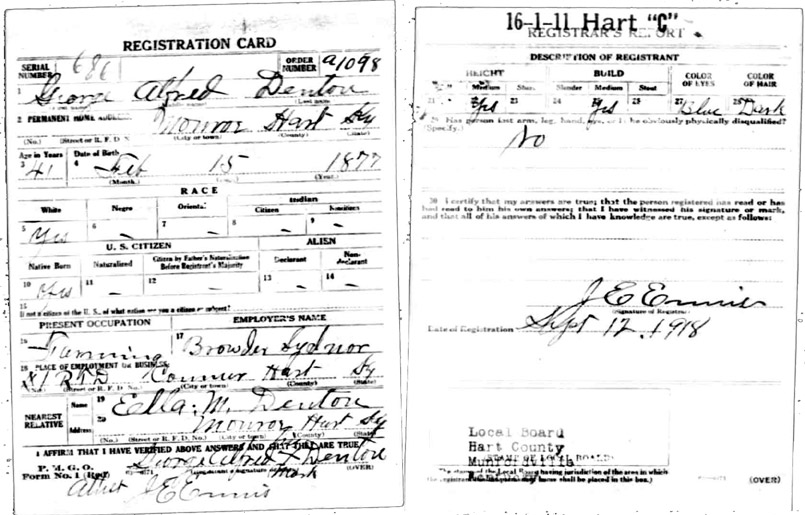 REGISTRATION CARD
SERIAL NUMBER 686 ORDER NUMBER a1098
1 George Alfred Denton
2 PERMANENT HOME ADDRESS
Monroe Hart Ky
(No.) (Street or R. F. D. No.) (City or town) (County) (State)
Age in Years Date of Birth
3 41 4 Feb 15 1877
(Month.) (Year.)
RACE
White Negro Oriental Indian
Citizen Noncitizen
5 Yes 6 — 7 — 8 — 9 —
U. S. CITIZEN ALIEN
Native Born Naturalized Citizen by Father's Naturalization Before Registrant's Majority Declarant Non-declarant
10 Yes 11 — 12 — 13 — 14 —
15
If not a citizen of the U. S., of what nation are you a citizen or subject?
PRESENT OCCUPATION EMPLOYER'S NAME
16 Farming 17 Browder Sydnor
18 PLACE OF EMPLOYMENT OR BUSINESS
Conner Hart Ky
(Street or R. F. D. No.) (City or town) (County) (State)
NEAREST RELATIVE Name 19 Ella M. Denton
Address 20 Monroe Hart Ky
(No.) (Street or R. F. D. No.) (City or town) (County) (State)
I AFFIRM THAT I HAVE VERIFIED ABOVE ANSWERS AND THAT THEY ARE TRUE
P. M. G. O.
Form No. 1 (Red) George Alfred X Denton (OVER)
mark
Attest J E Ennis
16-1-11 Hart "C"
REGISTRAR'S REPORT
DESCRIPTION OF REGISTRANT
HEIGHT BUILD COLOR OF EYES COLOR OF HAIR
Medium Short Slender Medium Stout
21 22 Yes 23 24 25 Yes 26 27 Blue 28 Dark
29 Has person lost arm, leg, hand, eye, or is he obviously physically disqualified?
(Specify.)
No
30 I certify that my answers are true; that the person registered has read or has had read to him his own answers; that I have witnessed his signature or mark, and that all of his answers of which I have knowledge are true, except as follows:
J E Ennis
(Signature of Registrar)
Date of Registration Sept 12, 1918
Local Board
Hart County
Munfordville
STAMP OF LOCAL BOARD
(The stamp of the Local Board having jurisdiction of the area in which the registrant has his permanent home shall be placed in this box.)
(OVER)